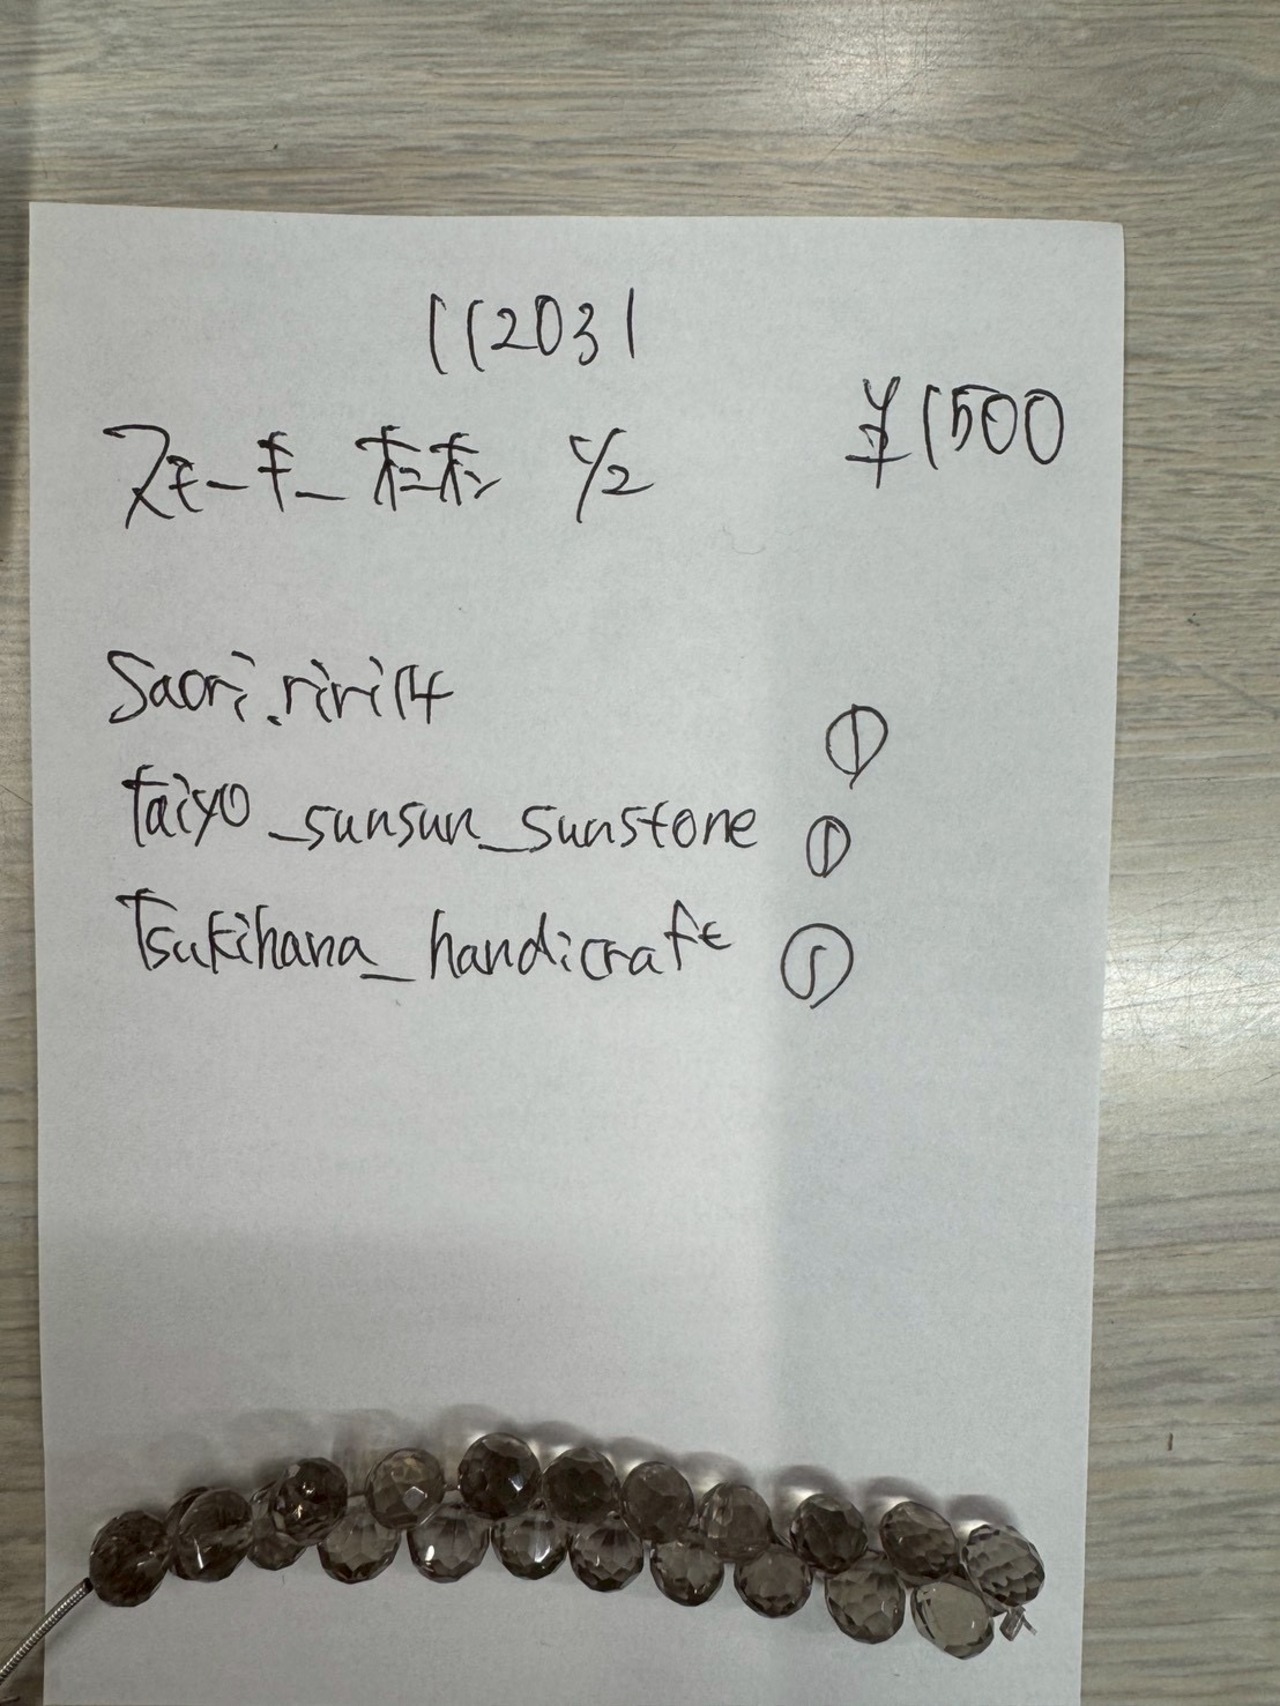 112031
¥1500
スモーキー 1/2
saori.riri14 ①
taiyo_sunsun_sunstone ①
Tsukihana_handicraft